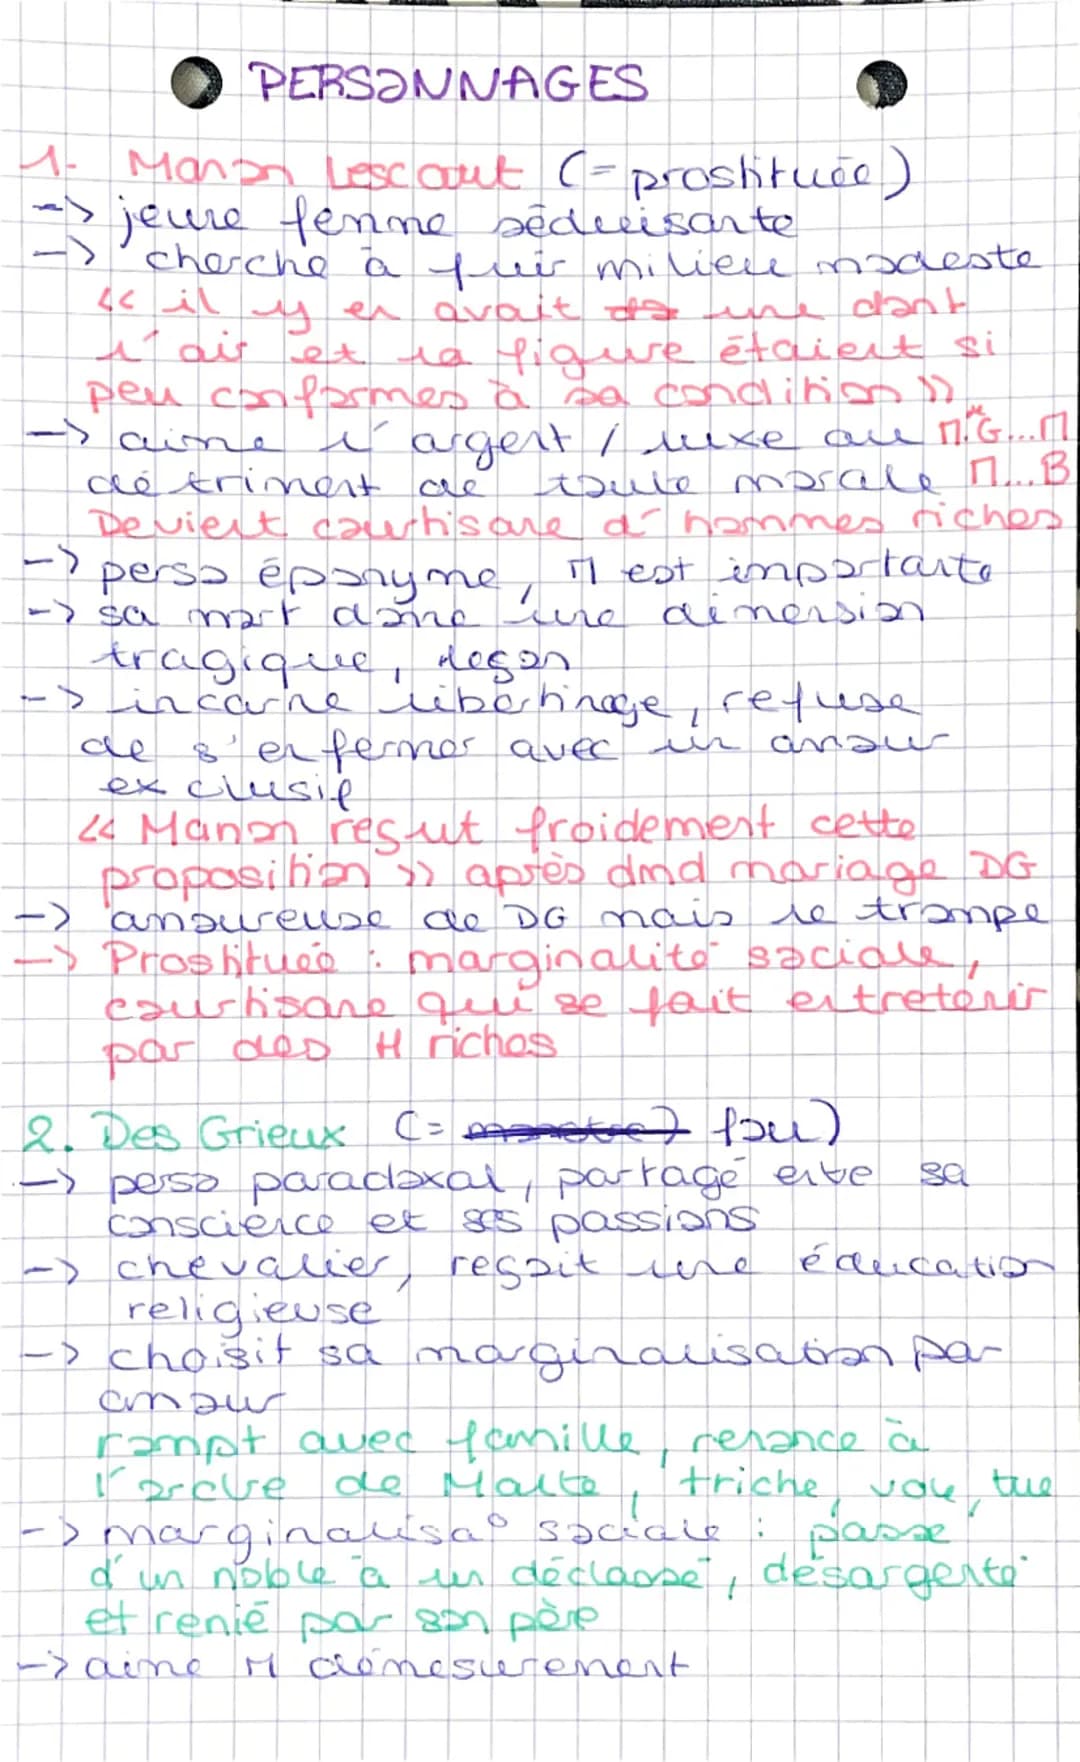 PERSONNAGES
1. Manon Lescaut (= prostituée)
-> jeune femme séduisante
-> cherche à fuir milieu modeste
<< il y en avait une dont
l'air et la figure étaient si
peu conformes à sa condition >>
-> aime l'argent / luxe au M.G...M
détriment de toute morale M...B
Devient courtisane d'hommes riches
-> perso éponyme, M est importante
-> sa mort donne une dimension
tragique, leçon
-> incarne libertinage, refuse
de s'enfermer avec un amour
exclusif
<< Manon reçut froidement cette
proposition >> après dmd mariage DG
-> amoureuse de DG mais le trompe
-> Prostituée : marginalité sociale,
courtisane qui se fait entretenir
par des H riches
2. Des Grieux (= fou)
-> perso paradoxal, partagé entre sa
conscience et ses passions
-> chevalier, reçoit une éducation
religieuse
-> choisit sa marginalisation par
amour
rompt avec famille, renonce à
l'ordre de Malte, triche, vole, tue
-> marginalisa° sociale : passe
d'un noble à un déclassé, désargenté
et renié par son père
-> aime M démesurement